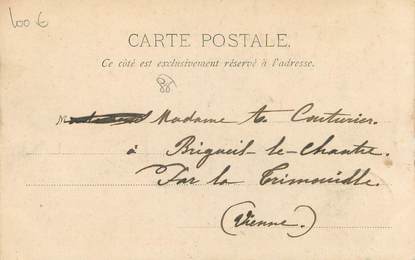 100 €
CARTE POSTALE.
Ce côté est exclusivement réservé à l'adresse.
Madame Couturier.
à Brigueil-le-Chantre.
Par la Trimouille.
(Vienne.)